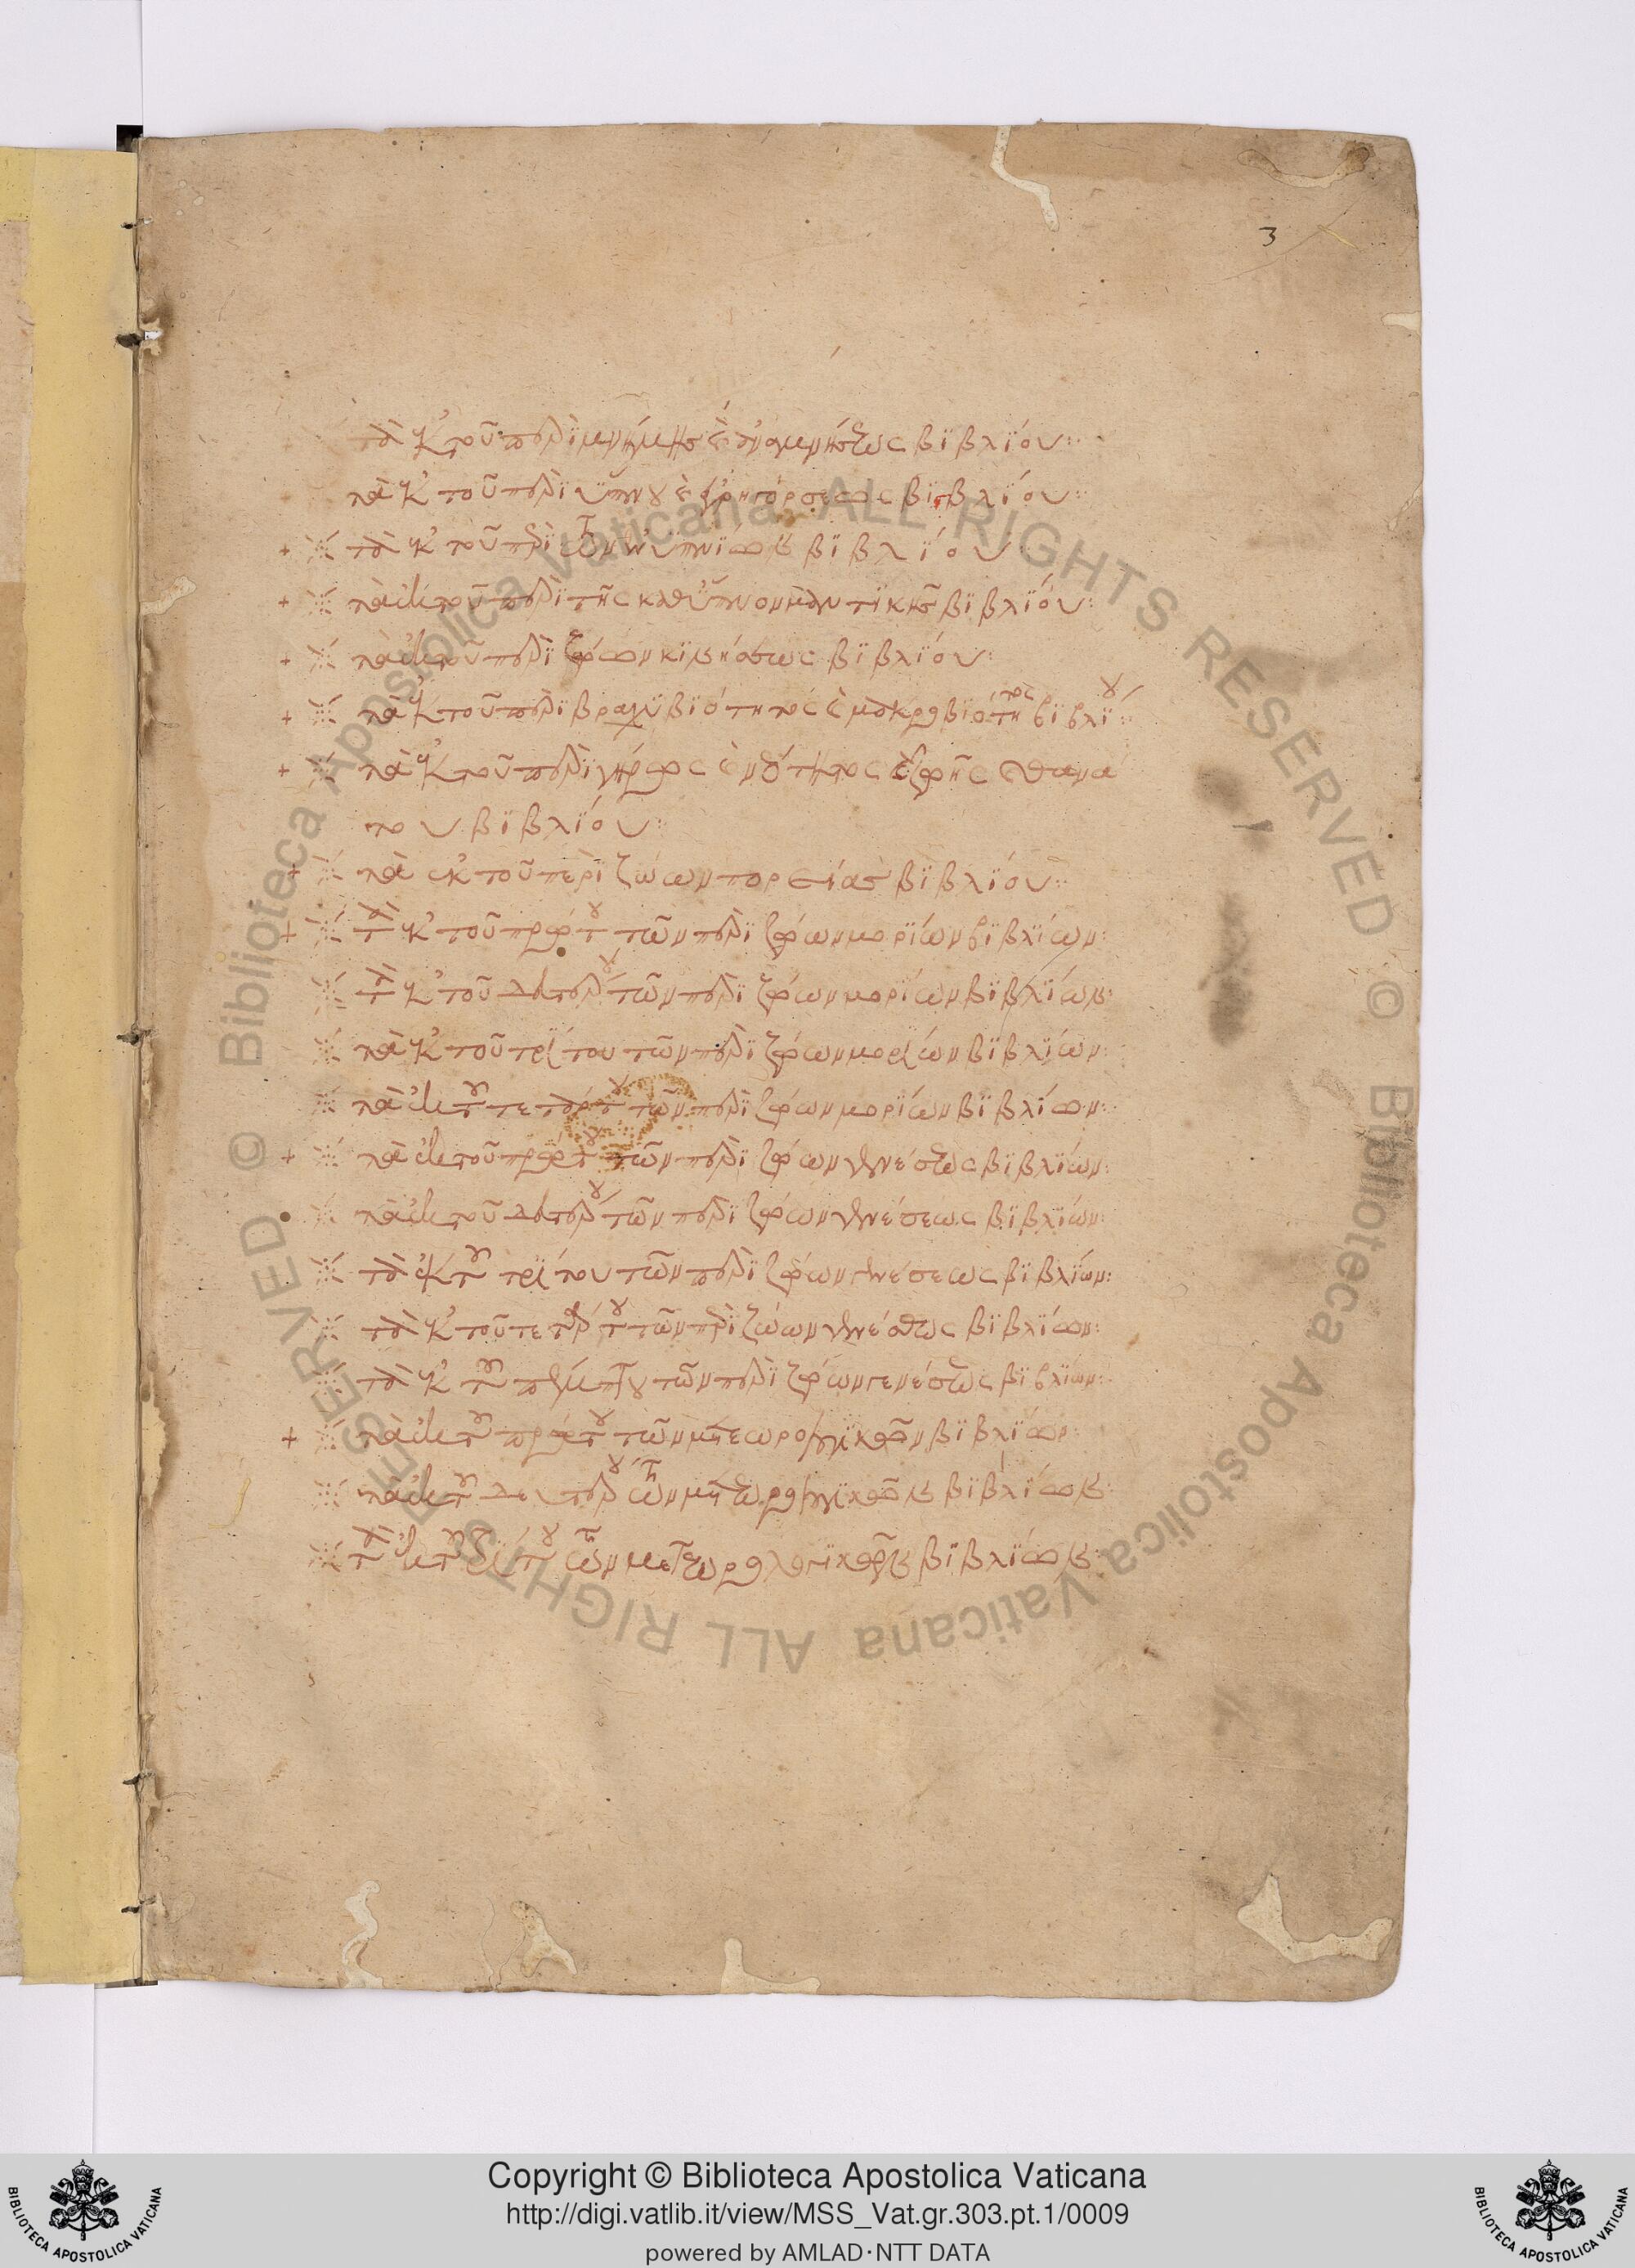 3
τὰ ἐκ τοῦ περὶ μνήμης καὶ ἀναμνήσεως βιβλίου:
τὰ ἐκ τοῦ περὶ ὕπνου καὶ ἐγρηγόρσεως βιβλίου:
+ ※ τὰ ἐκ τοῦ περὶ τῶν ἐνυπνίων βιβλίου
+ ※ τὰ ἐκ τοῦ περὶ τῆς καθ' ὕπνον μαντικῆς βιβλίου:
+ ※ τὰ ἐκ τοῦ περὶ ζῴων κινήσεως βιβλίου:
+ ※ τὰ ἐκ τοῦ περὶ βραχυβιότητος καὶ μακροβιότητος βιβλίου:
+ ※ τὰ ἐκ τοῦ περὶ γήρως καὶ νεότητος καὶ ζωῆς καὶ θανά
του βιβλίου:
+ ※ τὰ ἐκ τοῦ περὶ ζώων πορείας βιβλίου:
+ ※ τὰ ἐκ τοῦ πρώτου τῶν περὶ ζῴων μορίων βιβλίων:
※ τὰ ἐκ τοῦ δευτέρου τῶν περὶ ζῴων μορίων βιβλίων:
※ τὰ ἐκ τοῦ τρίτου τῶν περὶ ζῴων μορίων βιβλίων:
※ τὰ ἐκ τοῦ τετάρτου τῶν περὶ ζῴων μορίων βιβλίων:
+ ※ τὰ ἐκ τοῦ πρώτου τῶν περὶ ζῴων γενέσεως βιβλίων:
※ τὰ ἐκ τοῦ δευτέρου τῶν περὶ ζῴων γενέσεως βιβλίων:
※ τὰ ἐκ τοῦ τρίτου τῶν περὶ ζῴων γενέσεως βιβλίων:
※ τὰ ἐκ τοῦ τετάρτου τῶν περὶ ζώων γενέσεως βιβλίων:
※ τὰ ἐκ τοῦ πέμπτου τῶν περὶ ζῴων γενέσεως βιβλίων:
+ ※ τὰ ἐκ τοῦ πρώτου τῶν μετεωρολογικῶν βιβλίων:
※ τὰ ἐκ τοῦ δευτέρου τῶν μετεωρολογικῶν βιβλίων:
※ τὰ ἐκ τοῦ τρίτου τῶν μετεωρολογικῶν βιβλίων:
© Biblioteca Apostolica Vaticana ALL RIGHTS RESERVED © Biblioteca Apostolica Vaticana ALL RIGHTS RESERVED
BIBLIOTECA APOSTOLICA VATICANA
Copyright © Biblioteca Apostolica Vaticana
http://digi.vatlib.it/view/MSS_Vat.gr.303.pt.1/0009
powered by AMLAD·NTT DATA
BIBLIOTECA APOSTOLICA VATICANA